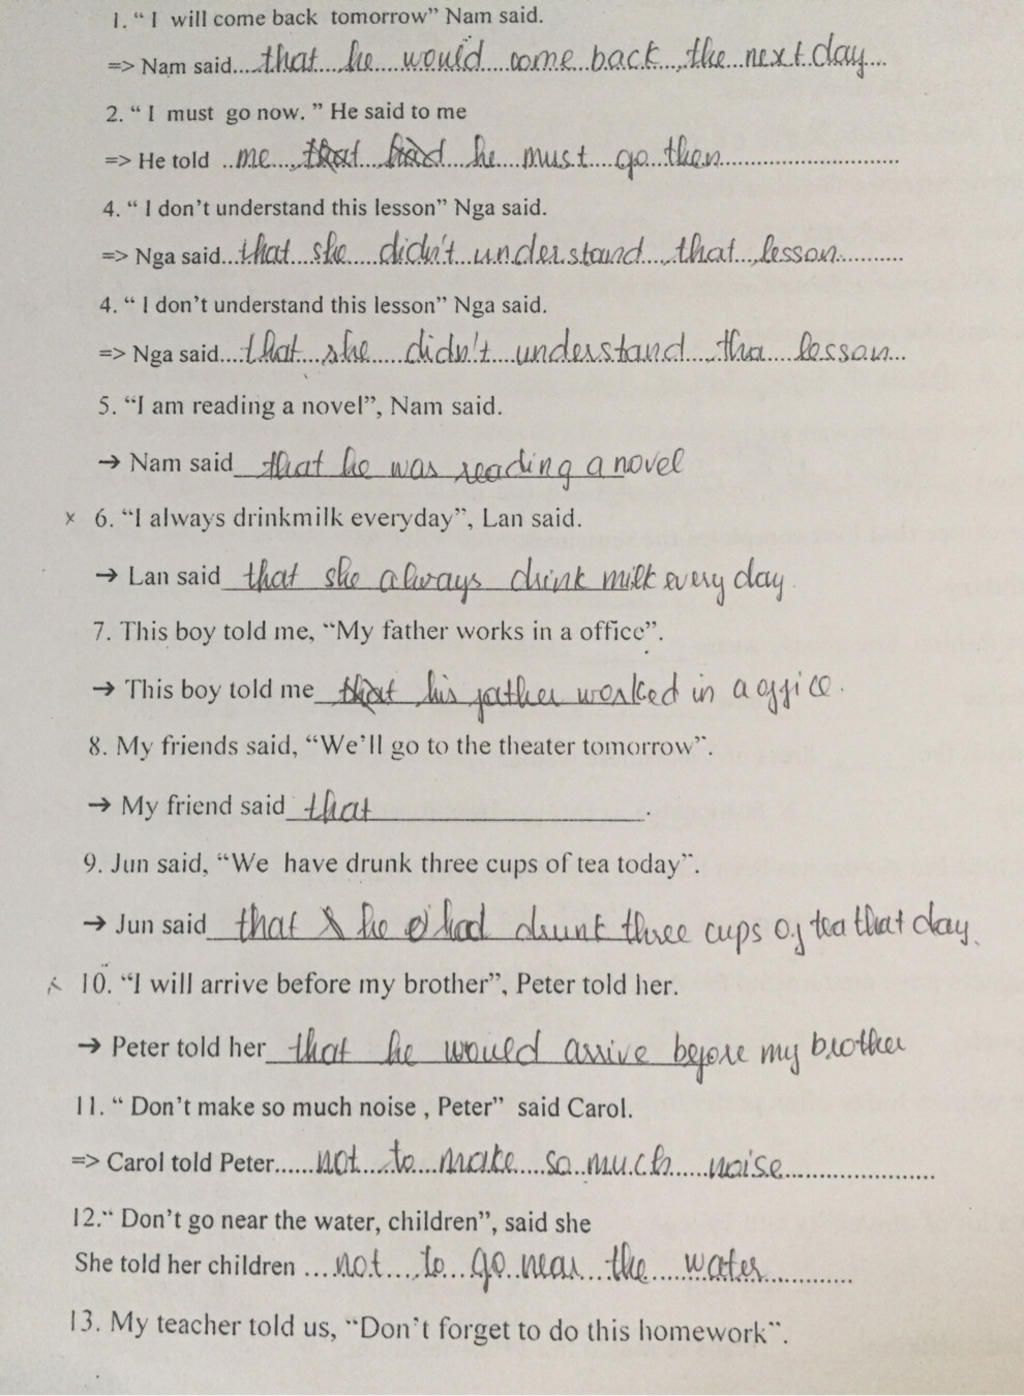 1. “ I will come back tomorrow” Nam said.
=> Nam said....that...he would...come..back...the..next.day...
2. “ I must go now. ” He said to me
=> He told ..me.... he...must...go..then..............................
4. “ I don’t understand this lesson” Nga said.
=> Nga said...that...she....didn't...understand...that...lesson...........
4. “ I don’t understand this lesson” Nga said.
=> Nga said....that...she....didn't...understand...tha...lesson...
5. “I am reading a novel”, Nam said.
→ Nam said that he was reading a novel
x 6. “I always drinkmilk everyday”, Lan said.
→ Lan said that she always drink milk every day.
7. This boy told me, “My father works in a office”.
→ This boy told me that his father worked in a office.
8. My friends said, “We’ll go to the theater tomorrow”.
→ My friend said that ____________.
9. Jun said, “We have drunk three cups of tea today”.
→ Jun said that he had drunk three cups of tea that day.
x 10. “I will arrive before my brother”, Peter told her.
→ Peter told her that he would arrive before my brother
11. “ Don’t make so much noise , Peter” said Carol.
=> Carol told Peter......not...to...make....so..much.....noise........................
12.“ Don’t go near the water, children”, said she
She told her children ...not....to...go..near...the.....water..............
13. My teacher told us, “Don’t forget to do this homework”.